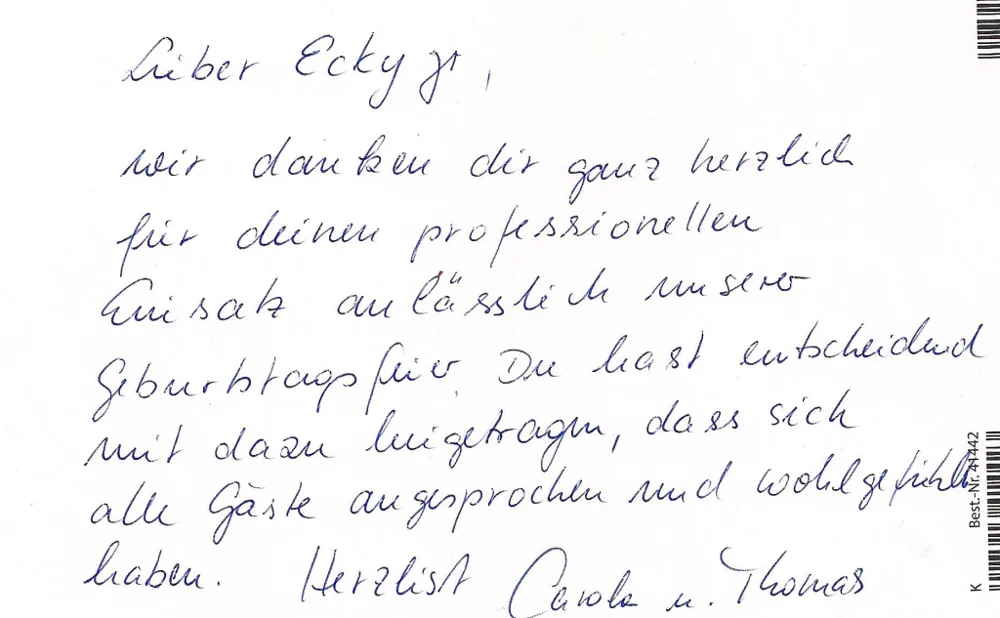 Lieber Ecky jr,
wir danken dir ganz herzlich
für deinen professionellen
Einsatz anlässlich unserer
Geburtstagsfeier. Du hast entscheidend
mit dazu beigetragen, dass sich
alle Gäste angesprochen und wohlgefühlt
haben. Herzlist Carola u. Thomas
Best.-Nr. 41442
K